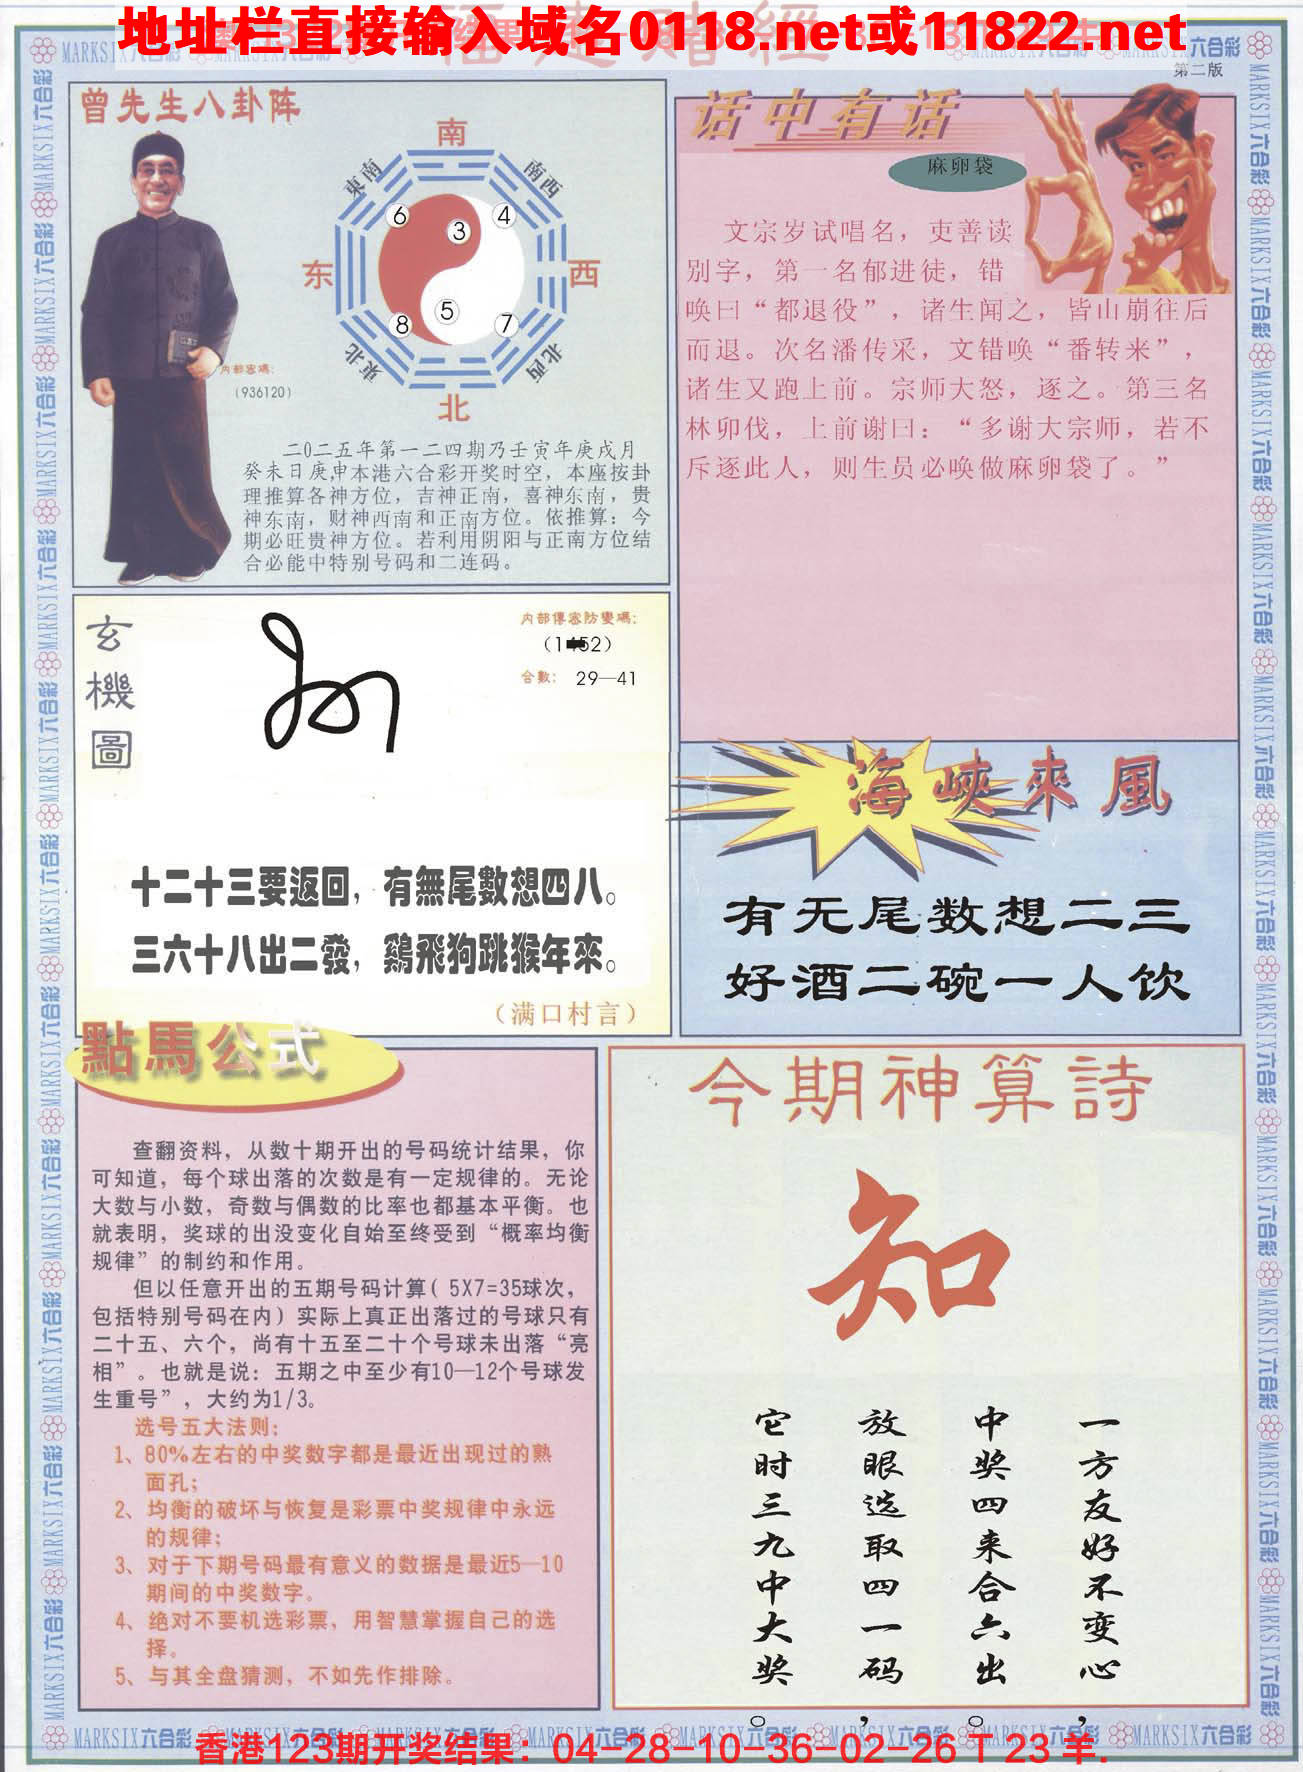 地址栏直接输入域名0118.net或11822.net
第二版
曾先生八卦阵
南
東南
南西
6
3
4
东
西
5
8
7
東北
北西
北
内部密碼:
(936120)
二0二五年第一二四期乃壬寅年庚戌月
癸未日庚申本港六合彩开奖时空，本座按卦
理推算各神方位，吉神正南，喜神东南，贵
神东南，财神西南和正南方位。依推算：今
期必旺贵神方位。若利用阴阳与正南方位结
合必能中特别号码和二连码。
话中有话
麻卵袋
文宗岁试唱名，吏善读
别字，第一名郁进徒，错
唤曰“都退役”，诸生闻之，皆山崩往后
而退。次名潘传采，文错唤“番转来”，
诸生又跑上前。宗师大怒，逐之。第三名
林卯伐，上前谢曰：“多谢大宗师，若不
斥逐此人，则生员必唤做麻卵袋了。”
玄機圖
内部傳密防變碼:
合數: 29—41
十二十三要返回，有無尾數想四八。
三六十八出二發，鷄飛狗跳猴年來。
（满口村言）
海峽來風
有无尾数想二三
好酒二碗一人饮
點馬公式
查翻资料，从数十期开出的号码统计结果，你
可知道，每个球出落的次数是有一定规律的。无论
大数与小数，奇数与偶数的比率也都基本平衡。也
就表明，奖球的出没变化自始至终受到“概率均衡
规律”的制约和作用。
但以任意开出的五期号码计算( 5X7=35球次，
包括特别号码在内）实际上真正出落过的号球只有
二十五、六个，尚有十五至二十个号球未出落“亮
相”。也就是说：五期之中至少有10—12个号球发
生重号”，大约为1/3。
选号五大法则：
1、80%左右的中奖数字都是最近出现过的熟
面孔；
2、均衡的破坏与恢复是彩票中奖规律中永远
的规律；
3、对于下期号码最有意义的数据是最近5—10
期间的中奖数字。
4、绝对不要机选彩票，用智慧掌握自己的选
择。
5、与其全盘猜测，不如先作排除。
今期神算詩
知
一方友好不变心，
中奖四来合六出。
放眼选取四一码，
它时三九中大奖。
MARKSIX六合彩
香港123期开奖结果：04-28-10-36-02-26 T 23 羊.